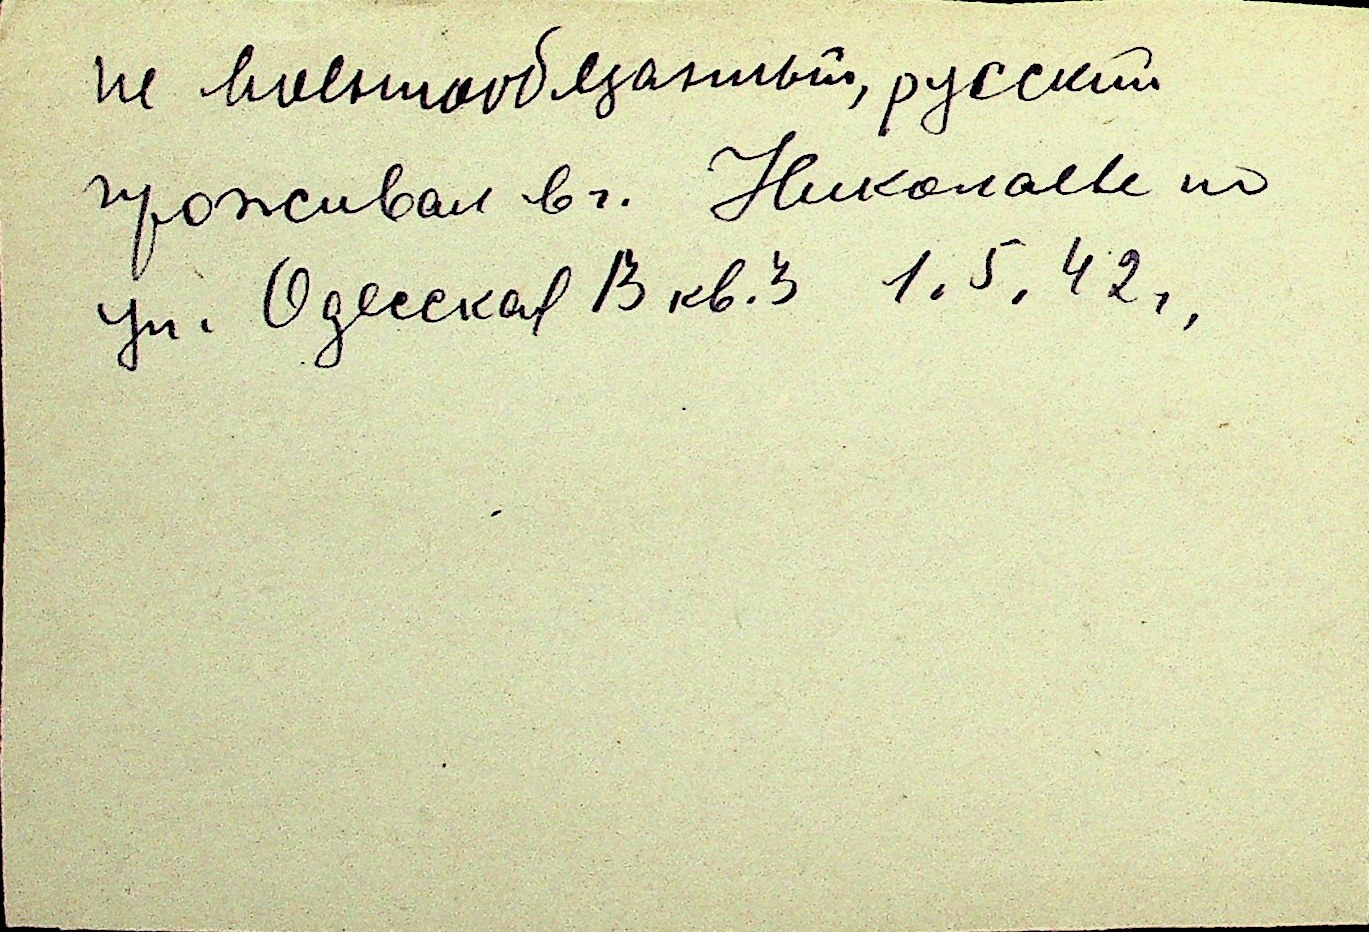 не военнообязанный, русский
проживал в г. Николаеве по
ул. Одесская 13 кв. 3 1.5.42г,